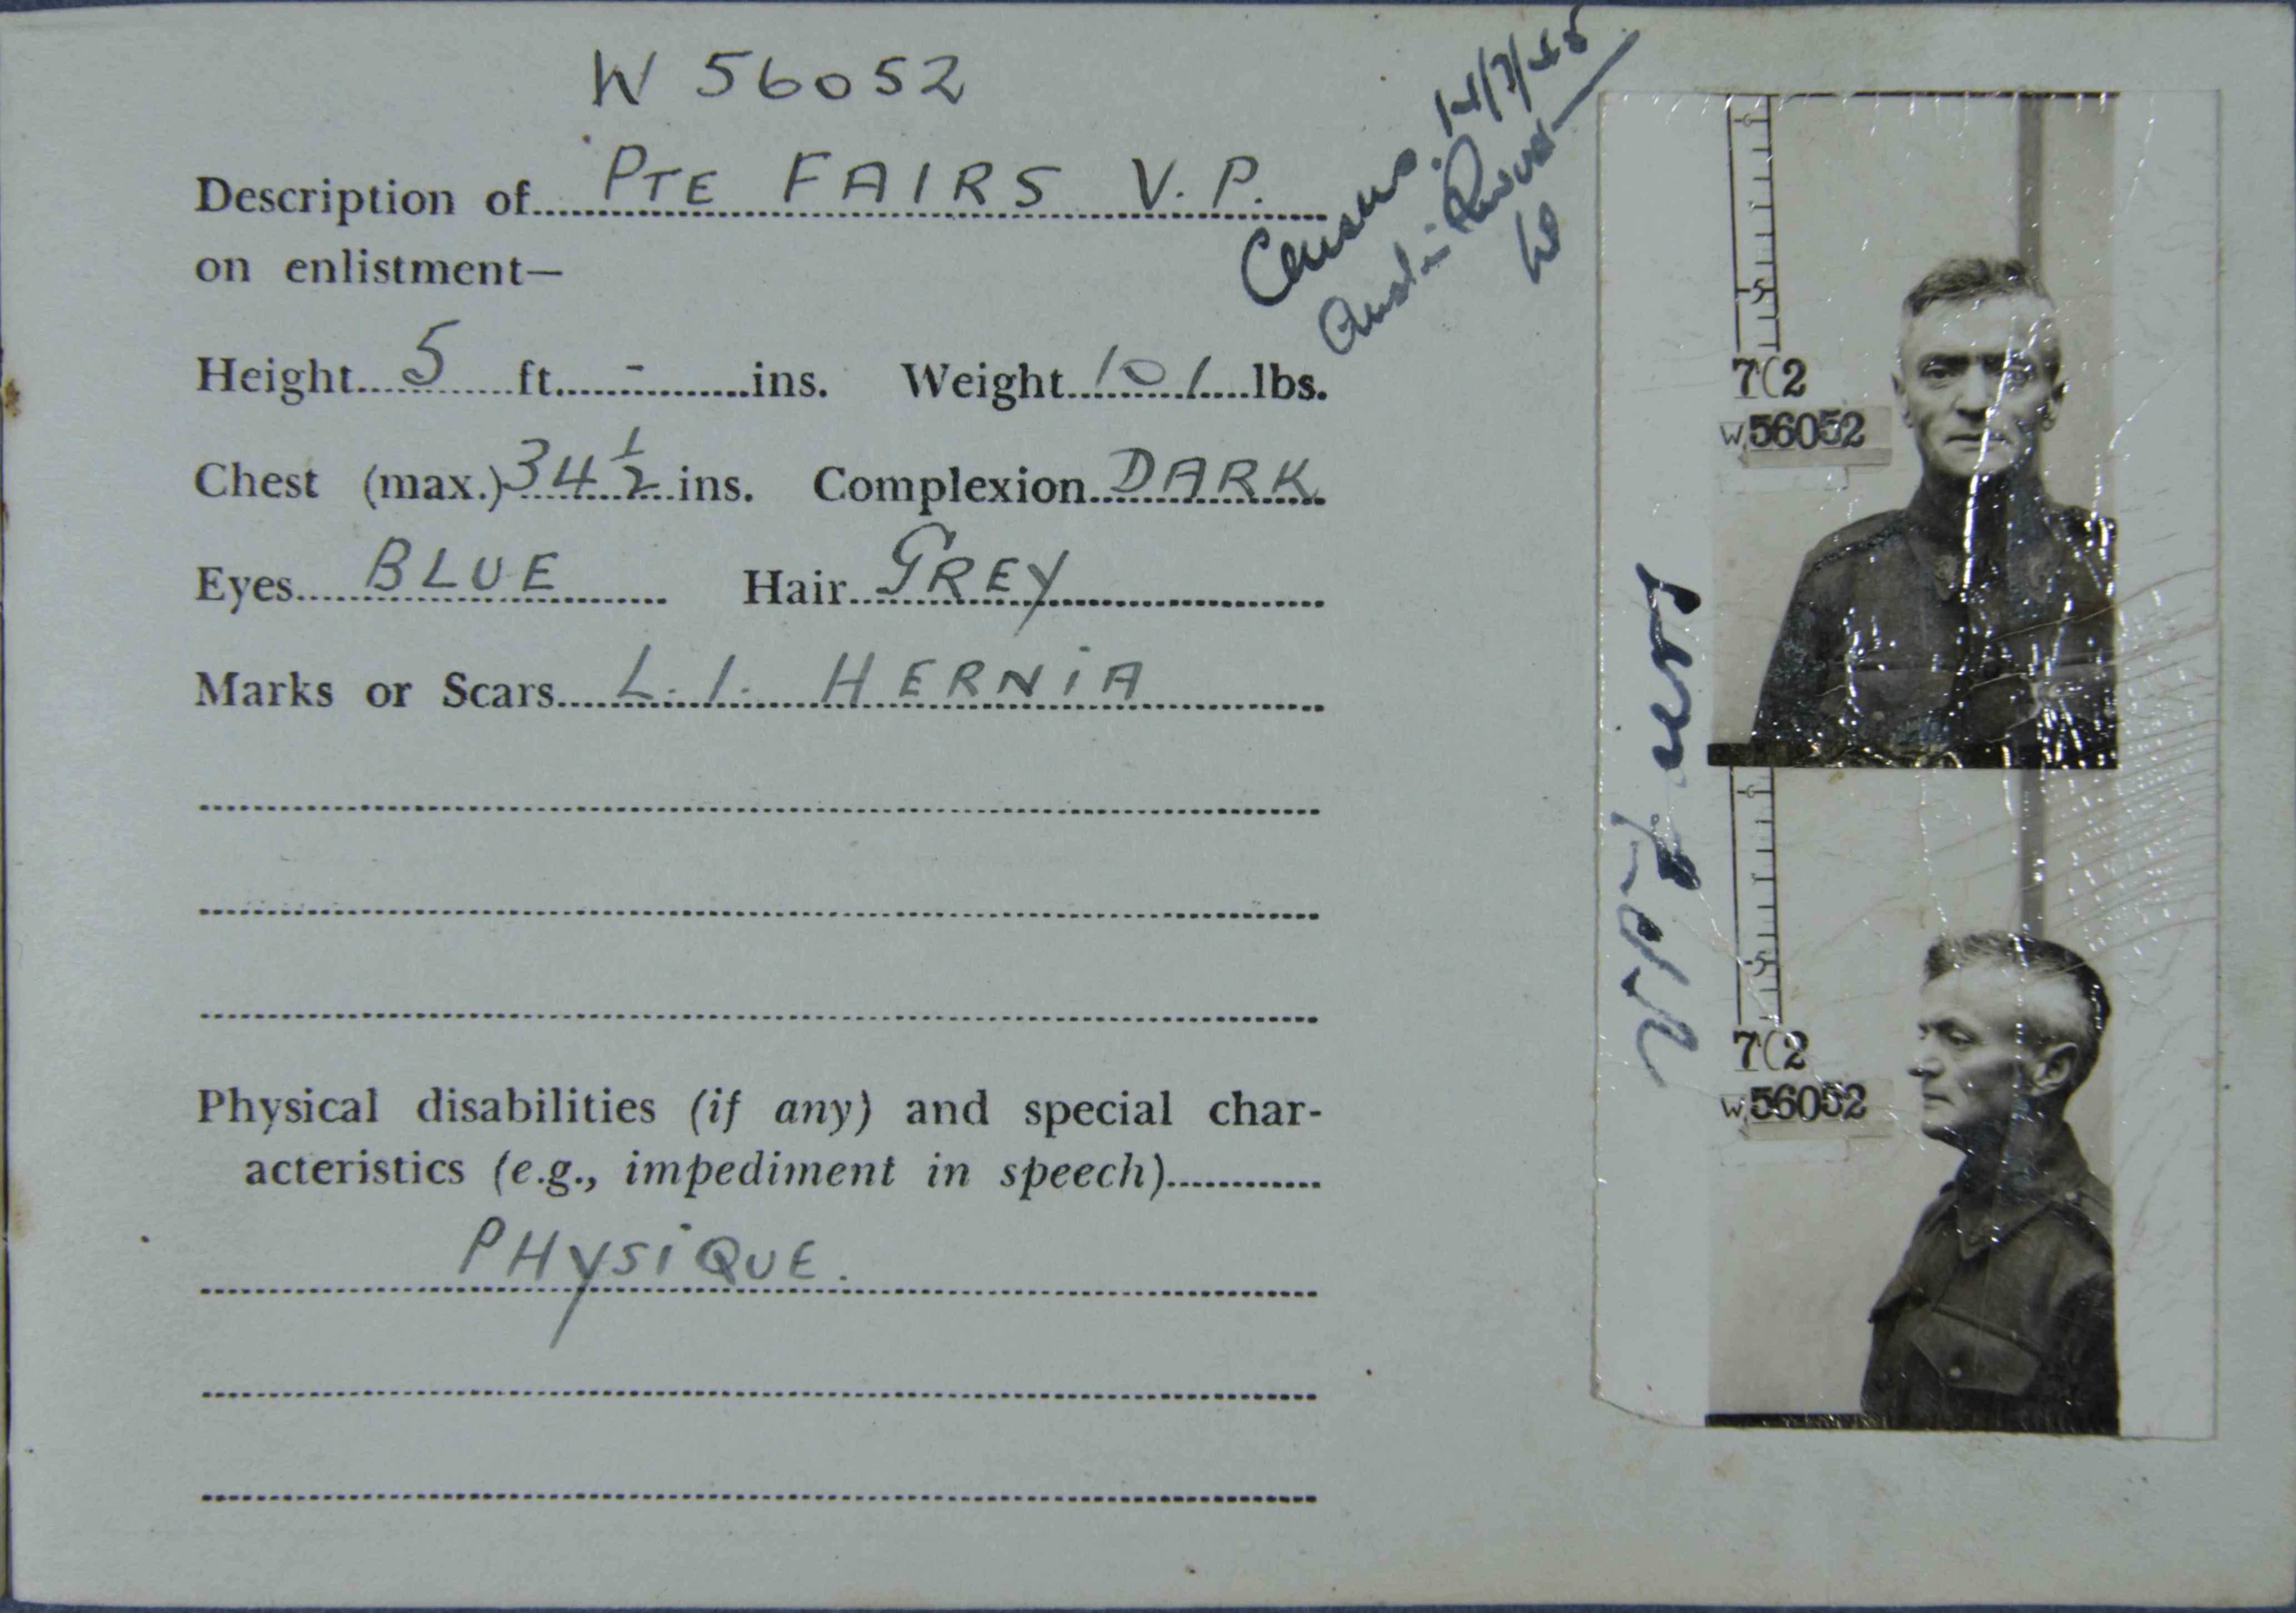 W 56052
Description of PTE FAIRS V. P.
on enlistment—
Height 5 ft. - ins. Weight 101 lbs.
Chest (max.) 34 1/2 ins. Complexion DARK
Eyes BLUE Hair GREY
Marks or Scars L. I. HERNIA
Physical disabilities (if any) and special char-
acteristics (e.g., impediment in speech)
PHYSIQUE.
Census. 14/7/45
6
5
7(2
W 56052
6
5
7(2
W 56052